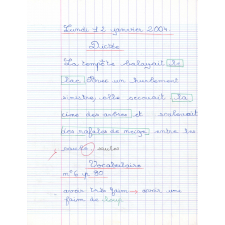 Lundi 12 janvier 2004
Dictée
La tempête balayait le
lac. Avec un hurlement
sinistre, elle secouait la
cime des arbres et soulevait
des rafales de neige entre les
Vocabulaire
n°6 p 90
avoir très faim → avoir une
faim de loup